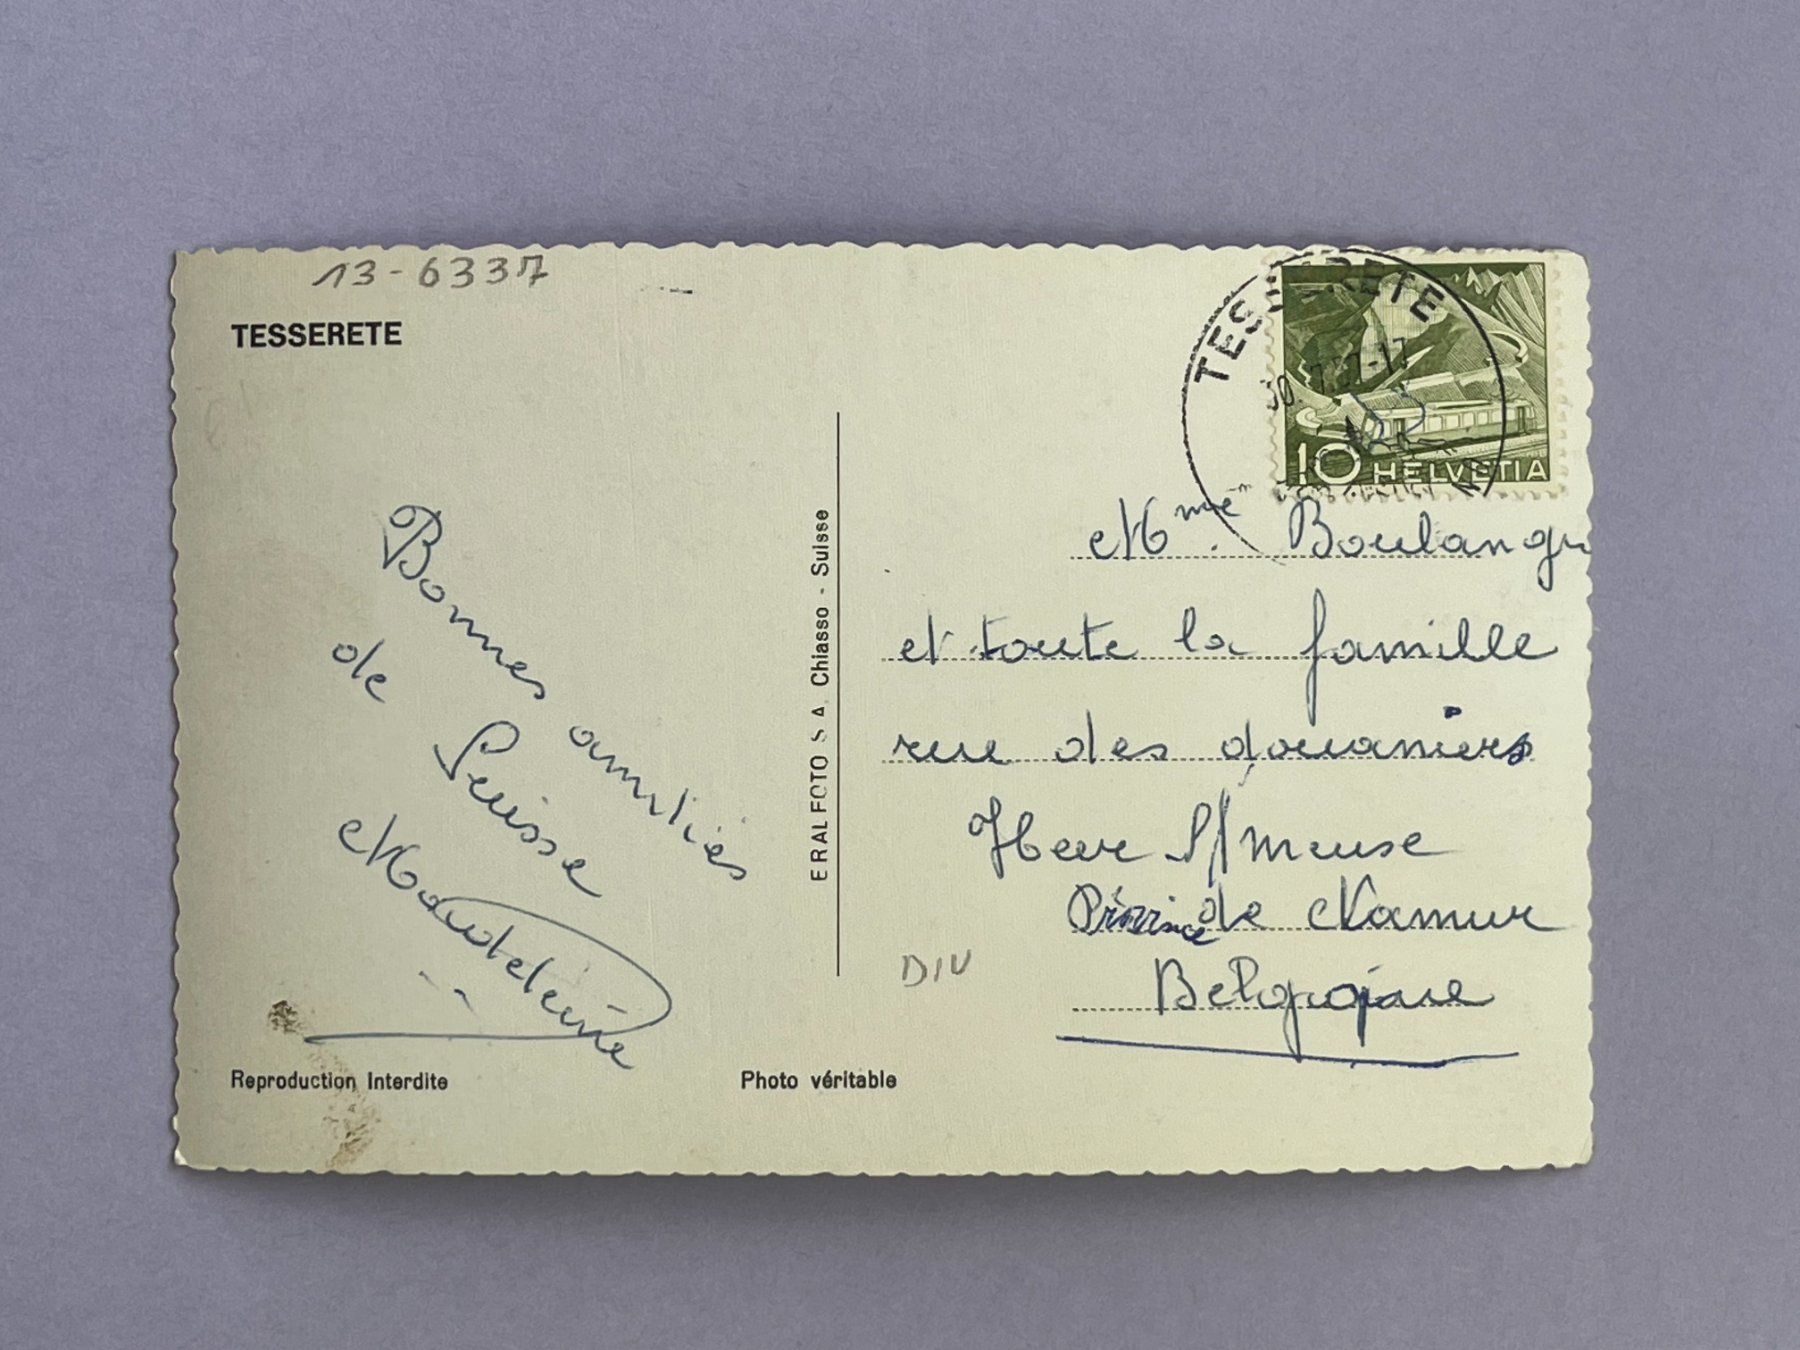 13-6337
TESSERETE
Bonnes amitiés
de Suisse
Madeleine
Reproduction Interdite
Photo véritable
ERALFOTO S A Chiasso - Suisse
TESSERETE
10 HELVETIA
Mme. Boulanger
et toute la famille
rue des douaniers
Heer S/Meuse
Province de Namur
Belgique
DIV